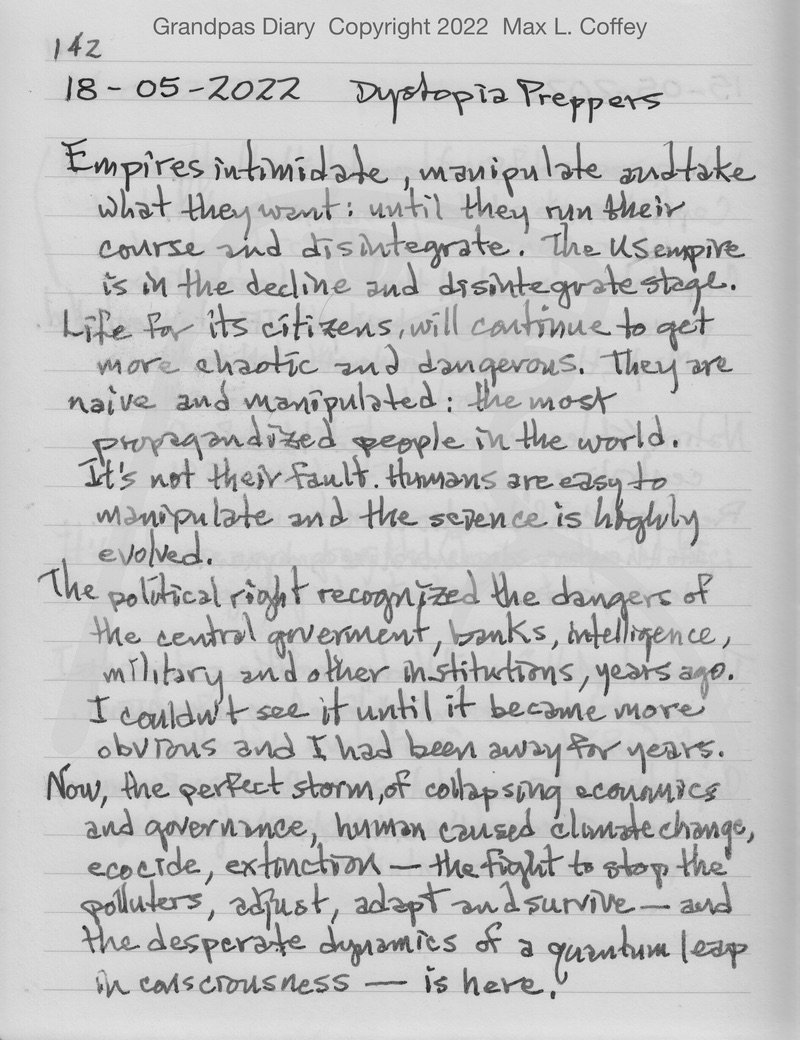 Grandpas Diary Copyright 2022 Max L. Coffey
142
18-05-2022 Dystopia Preppers
Empires intimidate, manipulate and take
what they want: until they run their
course and disintegrate. The US empire
is in the decline and disintegrate stage.
Life for its citizens, will continue to get
more chaotic and dangerous. They are
naive and manipulated: the most
propagandized people in the world.
It's not their fault. Humans are easy to
manipulate and the science is highly
evolved.
The political right recognized the dangers of
the central goverment, banks, intelligence,
military and other institutions, years ago.
I couldn't see it until it became more
obvious and I had been away for years.
Now, the perfect storm, of collapsing economics
and governance, human caused climate change,
ecocide, extinction — the fight to stop the
polluters, adjust, adapt and survive — and
the desperate dynamics of a quantum leap
in consciousness — is here.